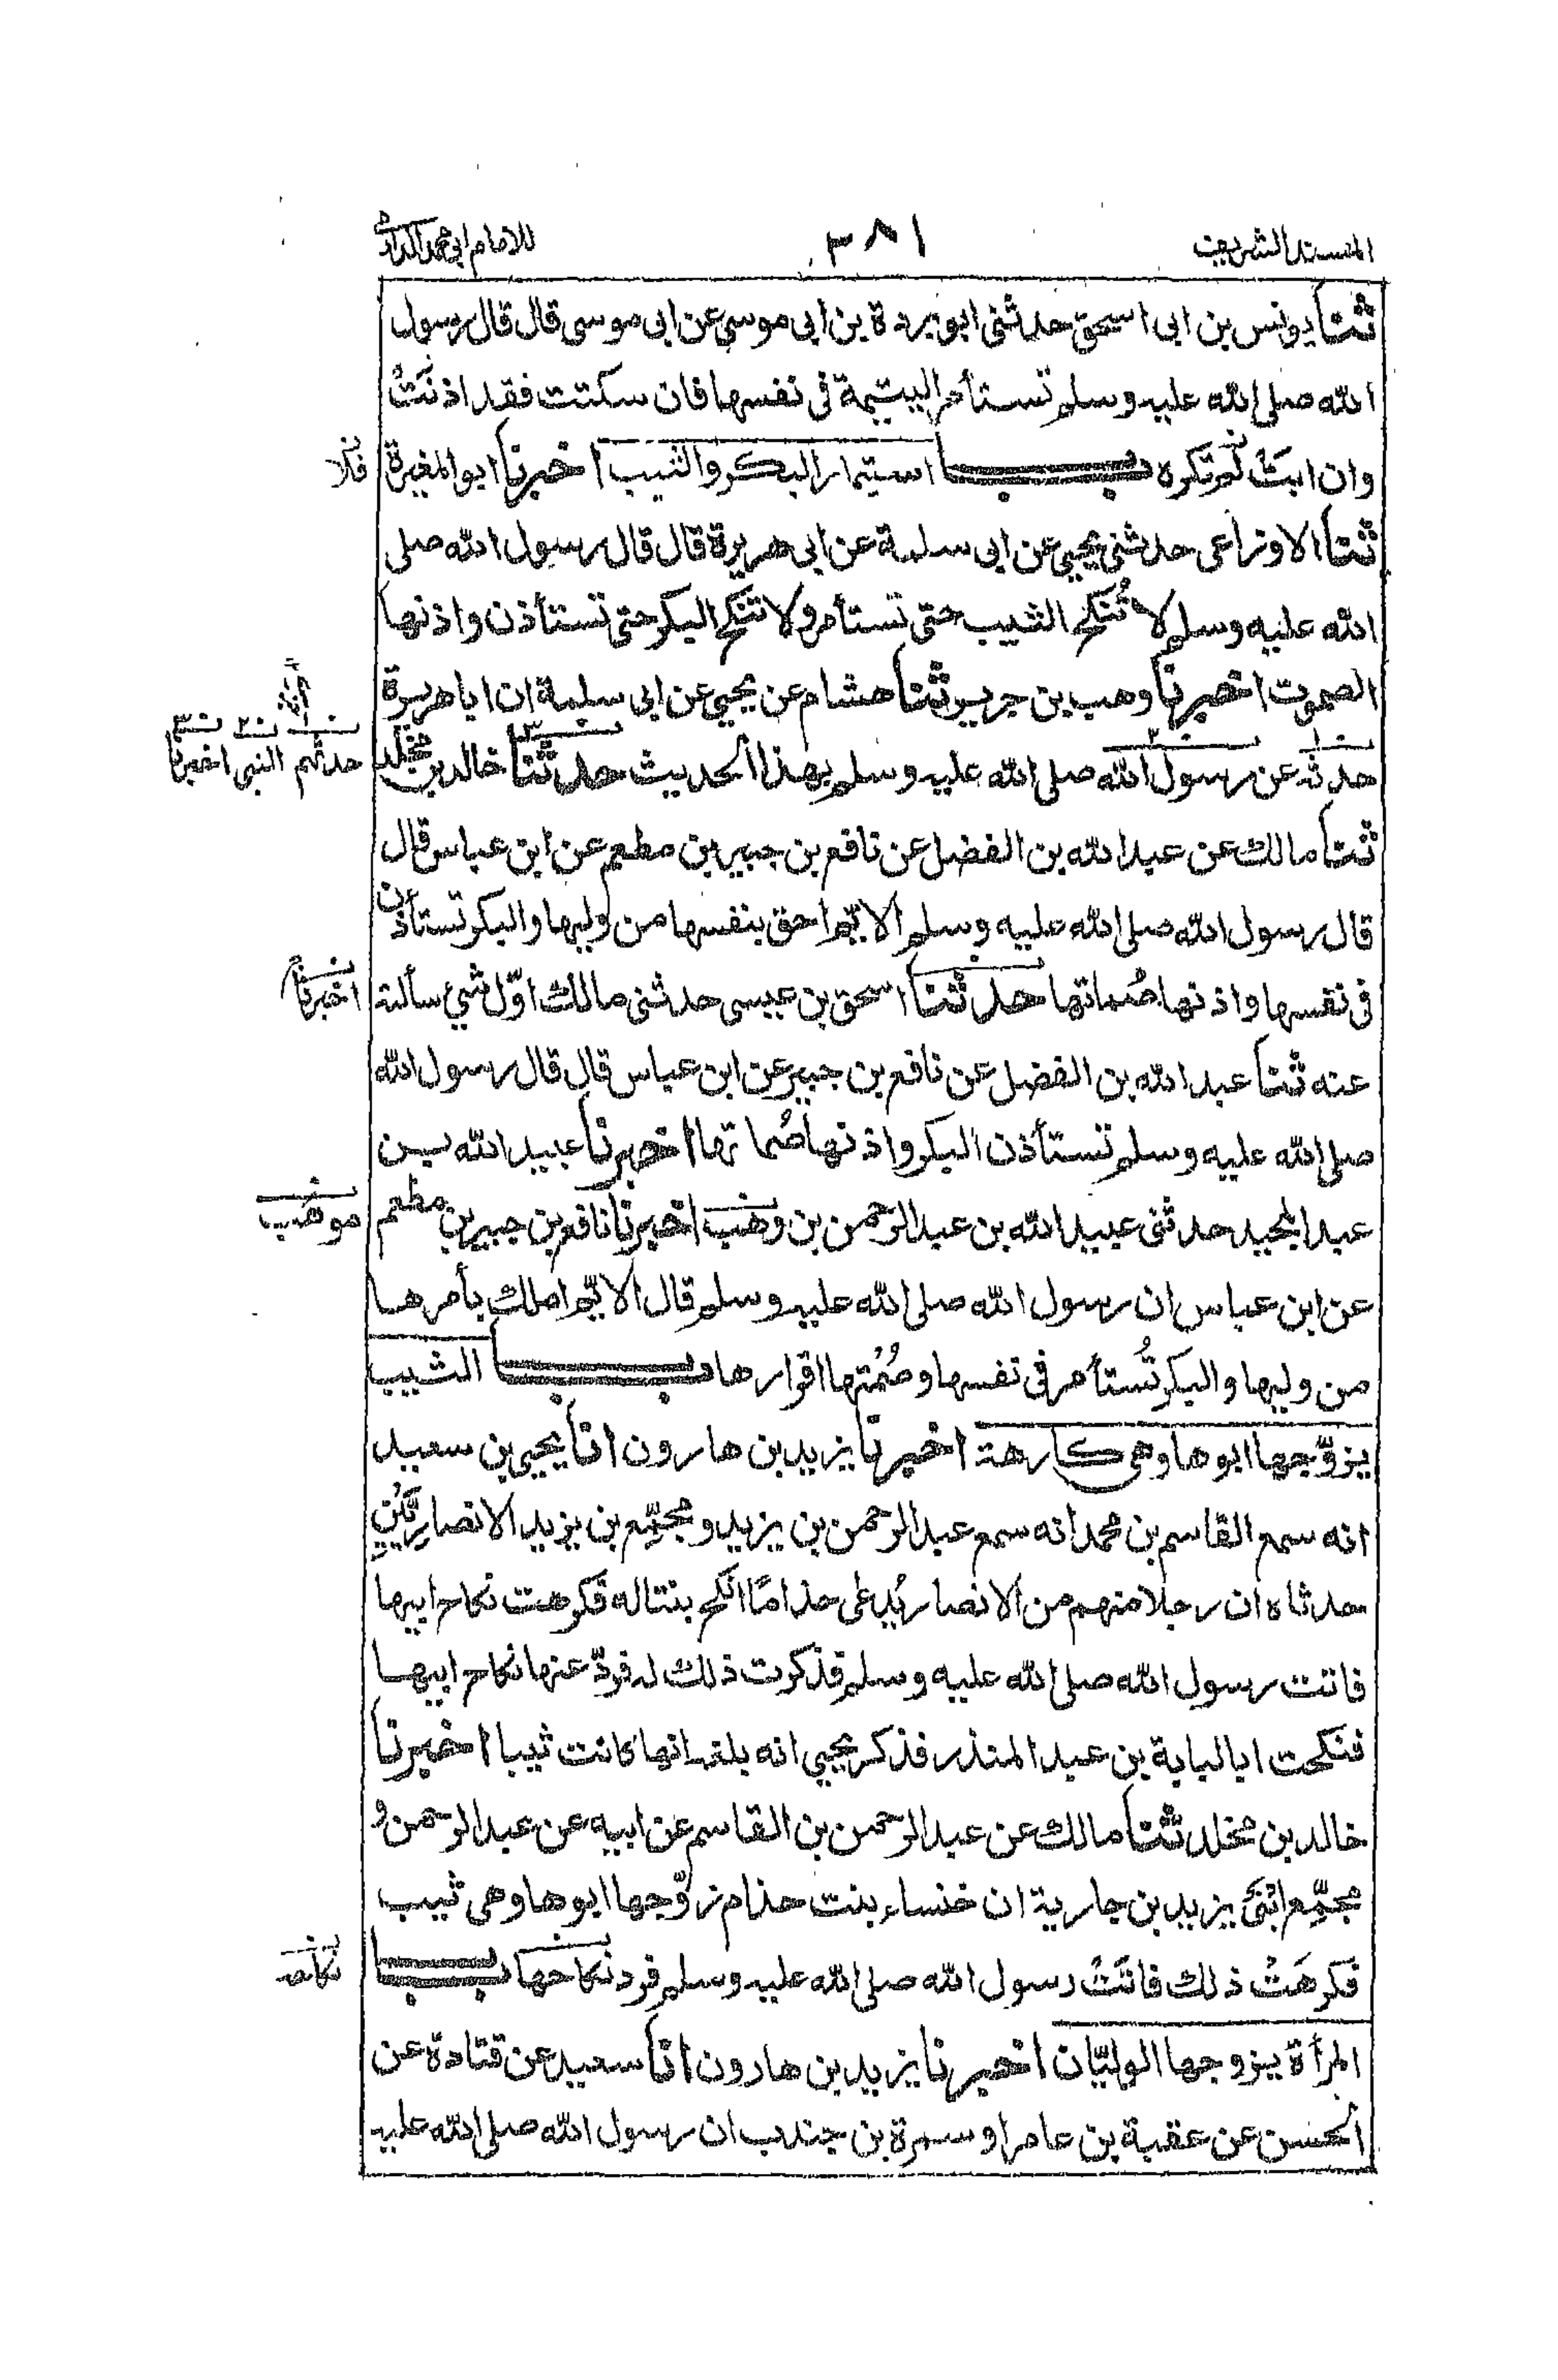 المسند الشريف ٣٨١ للامام ابى محمد الدارمى
ثنا يونس بن ابى اسحق حدثنى ابو بردة بن ابى موسى عن ابى موسى قال قال رسول
الله صلى الله عليه وسلم تستأمر اليتيمة فى نفسها فان سكتت فقد اذنَتْ
وان ابَتْ لم تكره باب استيمار البكر والثيب اخبرنا ابو المغيرة
فلا
ثنا الاوزاعى حدثنى يحيى عن ابى سلمة عن ابى هريرة قال قال رسول الله صلى
الله عليه وسلم لا تُنكح الثيب حتى تستأمر ولا تنكح البكر حتى تستأذن واذنها
الصموت اخبرنا وهب بن جرير ثنا هشام عن يحيى عن ابى سلمة ان ابا هريرة
حدثه عن رسول الله صلى الله عليه وسلم بهذا الحديث حدثنا خالد بن مخلد
حدثهم النبى اخبرنا
ثنا مالك عن عبد الله بن الفضل عن نافع بن جبير بن مطعم عن ابن عباس قال
قال رسول الله صلى الله عليه وسلم الايّم احق بنفسها من وليها والبكر تستأذن
فى نفسها واذنها صُماتها حدثنا اسحق بن عيسى حدثنى مالك اوّل شىء سألته
اخبرنا
عنه ثنا عبد الله بن الفضل عن نافع بن جبير عن ابن عباس قال قال رسول الله
صلى الله عليه وسلم تستأذن البكر واذنها صُماتها اخبرنا عبيد الله بن
عبد المجيد حدثنى عبيد الله بن عبد الرحمن بن وهب اخبرنا نافع بن جبير بن مطعم
موهب
عن ابن عباس ان رسول الله صلى الله عليه وسلم قال الايّم املك بأمرها
من وليها والبكر تُستأمر فى نفسها وصُمْتها اقرارها باب الثيب
يزوّجها ابوها وهى كارهة اخبرنا يزيد بن هارون انا يحيى بن سعيد
انه سمع القاسم بن محمد انه سمع عبد الرحمن بن يزيد ومجمّع بن يزيد الانصاريّين
حدثاه ان رجلا منهم من الانصار يُدعى خذامًا انكح بنتا له فكرهت نكاح ابيها
فاتت رسول الله صلى الله عليه وسلم فذكرت ذلك له فردّ عنها نكاح ابيها
فنكحت ابا لبابة بن عبد المنذر فذكر يحيى انه بلغه انها كانت ثيبا اخبرنا
خالد بن مخلد ثنا مالك عن عبد الرحمن بن القاسم عن ابيه عن عبد الرحمن و
مجمّع ابْنَىْ يزيد بن جارية ان خنساء بنت خذام زوّجها ابوها وهى ثيب
فكرهَتْ ذلك فاتَتْ رسول الله صلى الله عليه وسلم فرد نكاحها باب
نكاحه
المرأة يزوجها الوليّان اخبرنا يزيد بن هارون انا سعيد عن قتادة عن
الحسن عن عقبة بن عامر او سمرة بن جندب ان رسول الله صلى الله عليه